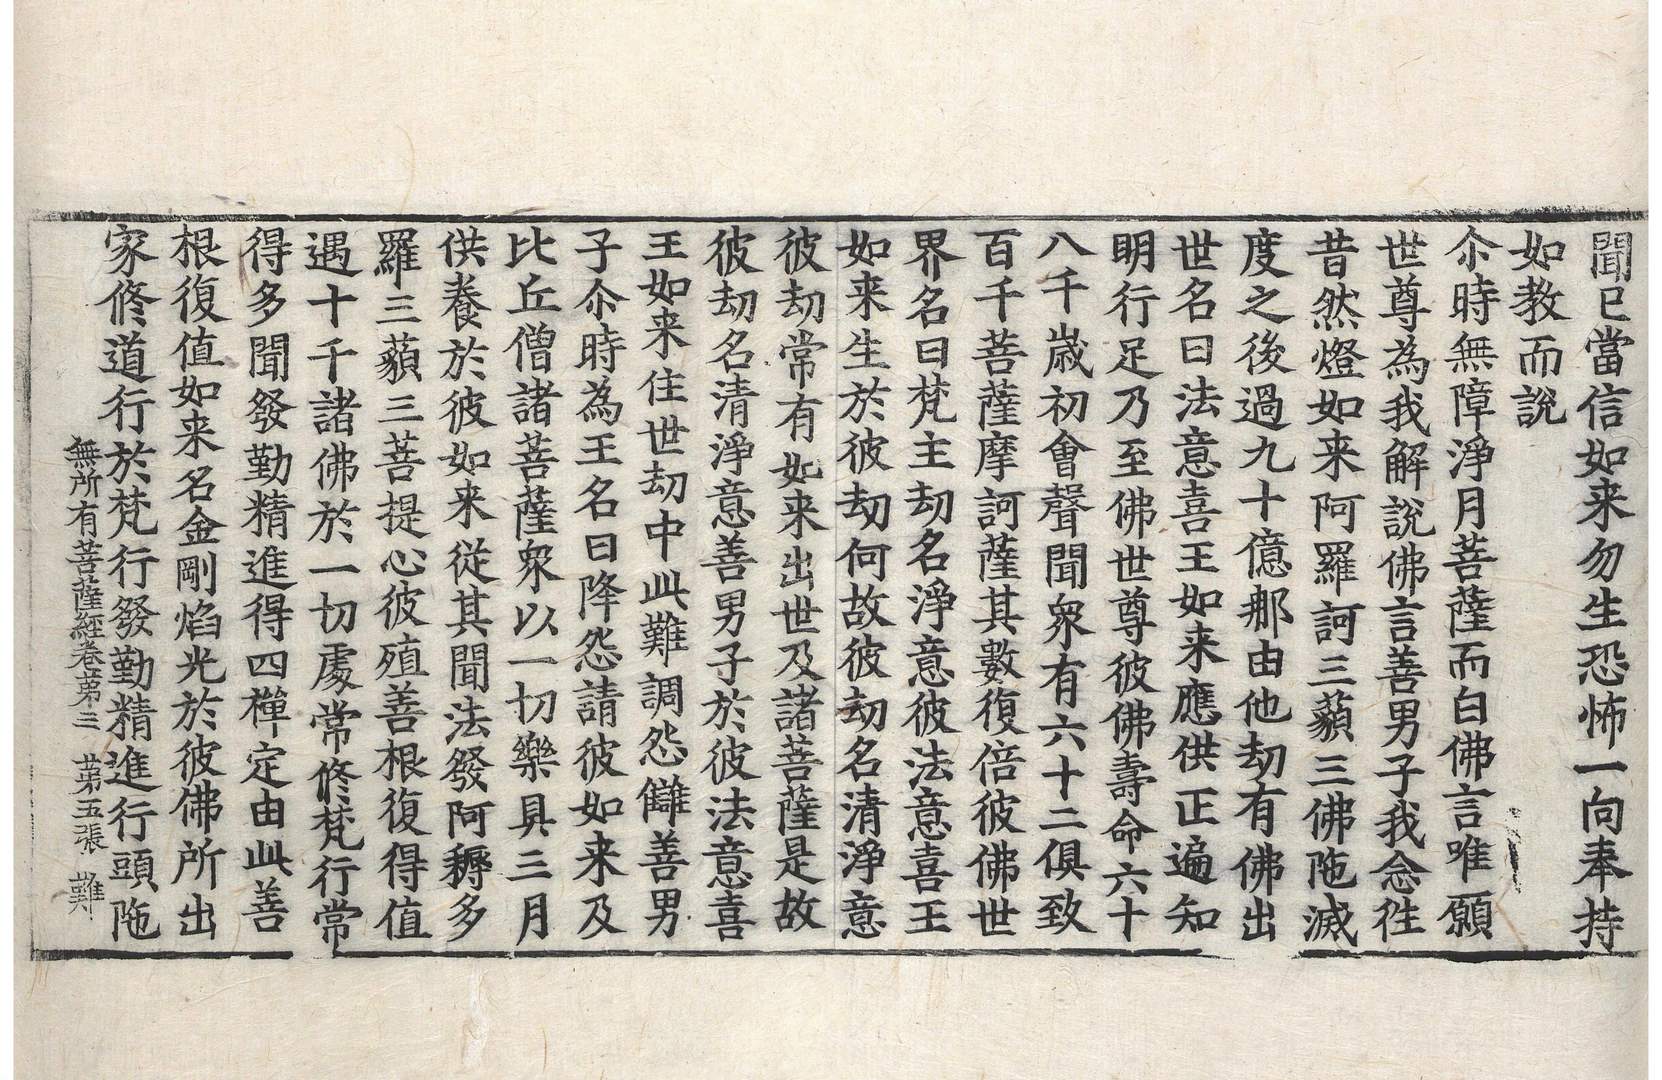 聞已當信如来勿生恐怖一向奉持
如教而說
尒時無障淨月菩薩而白佛言唯願
世尊為我解說佛言善男子我念往
昔然燈如来阿羅訶三藐三佛陁滅
度之後過九十億那由他劫有佛出
世名曰法意喜王如来應供正遍知
明行足乃至佛世尊彼佛壽命六十
八千歲初會聲聞衆有六十二俱致
百千菩薩摩訶薩其數復倍彼佛世
界名曰梵主劫名淨意彼法意喜王
如来生於彼劫何故彼劫名清淨意
彼劫常有如来出世及諸菩薩是故
彼劫名清淨意善男子於彼法意喜
王如来住世劫中此難調怨讎善男
子尒時為王名曰降怨請彼如来及
比丘僧諸菩薩衆以一切樂具三月
供養於彼如来從其聞法發阿耨多
羅三藐三菩提心彼殖善根復得值
遇十千諸佛於一切處常修梵行常
得多聞發勤精進得四禪定由此善
根復值如来名金剛焰光於彼佛所出
家修道行於梵行發勤精進行頭陁
無所有菩薩經卷第三 第五張 難